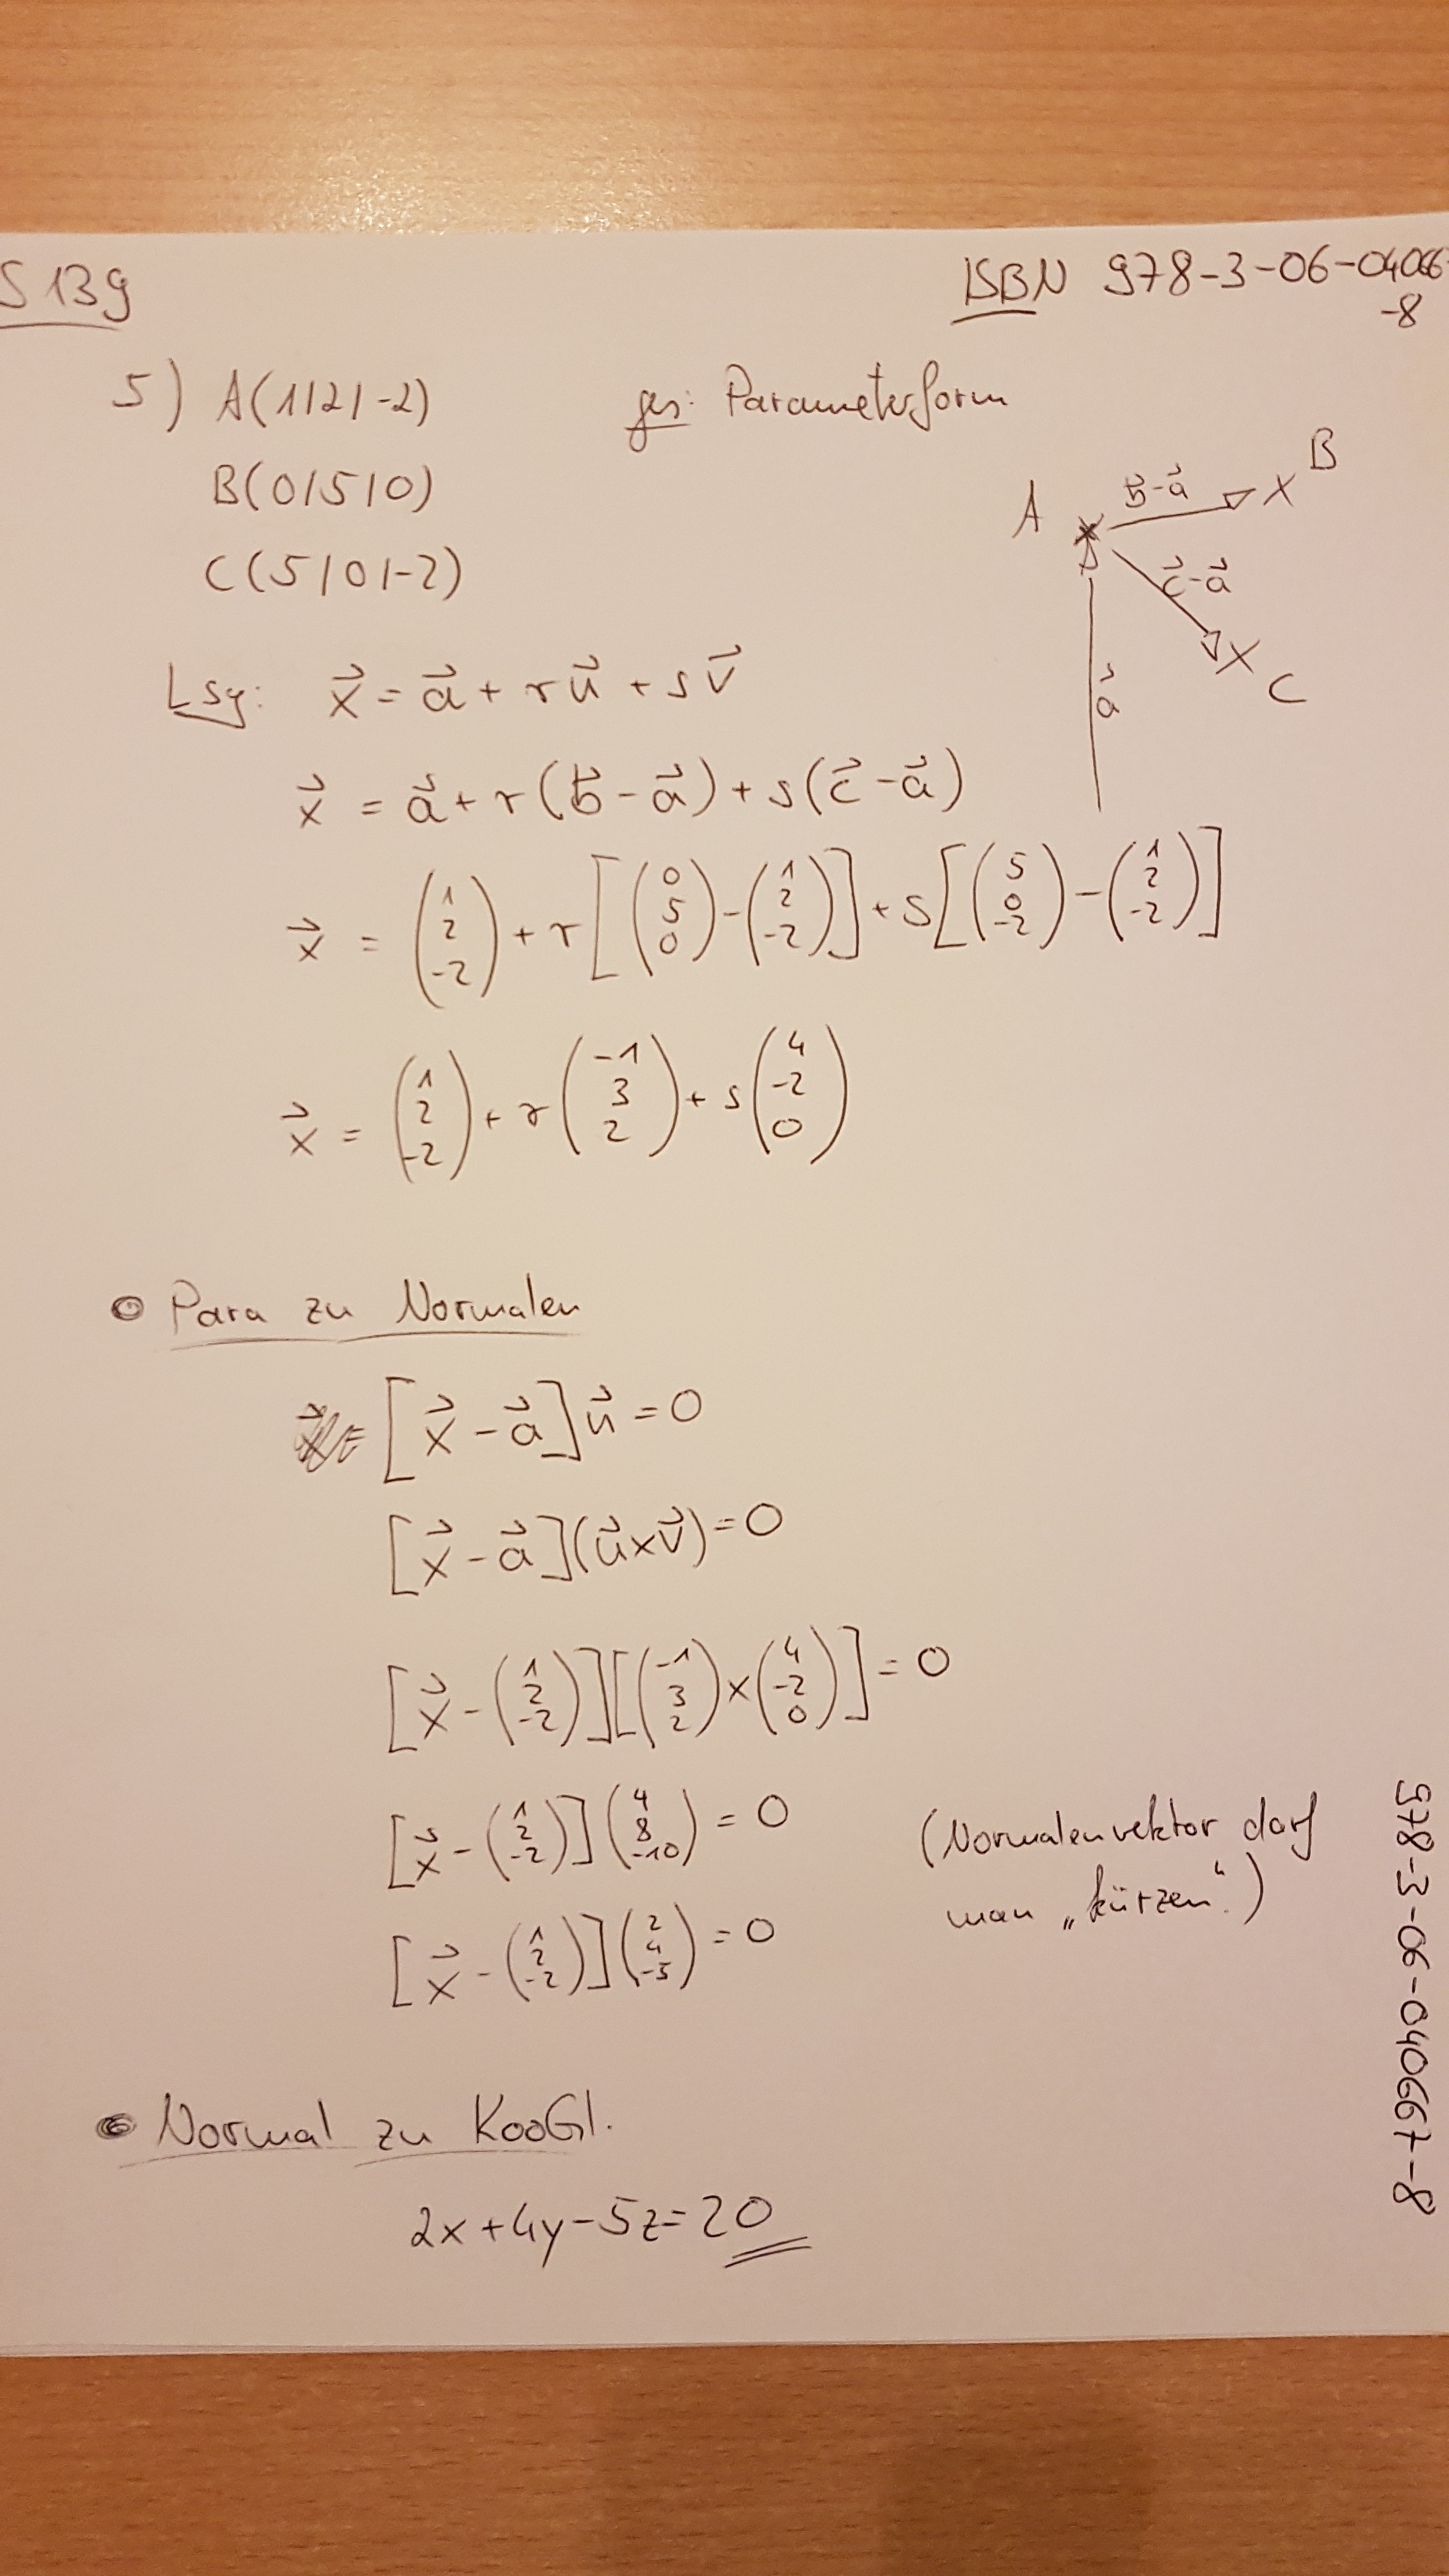 S 139
ISBN 978-3-06-04066
-8
5) A(1|2|-2)
ges: Parameterform
B(0|5|0)
C(5|0|-2)
A b⃗-a⃗ x B
c⃗-a⃗
x C
a⃗
Lsg: x⃗ = a⃗ + r u⃗ + s v⃗
x⃗ = a⃗ + r(b⃗ - a⃗) + s(c⃗ - a⃗)
x⃗ = (1 2 -2) + r[(0 5 0) - (1 2 -2)] + s[(5 0 -2) - (1 2 -2)]
x⃗ = (1 2 -2) + r(-1 3 2) + s(4 -2 0)
Para zu Normalen
[x⃗ - a⃗] n⃗ = 0
[x⃗ - a⃗](u⃗ x v⃗) = 0
[x⃗ - (1 2 -2)][(-1 3 2) x (4 -2 0)] = 0
[x⃗ - (1 2 -2)](4 8 -10) = 0
(Normalenvektor darf
man „kürzen“.)
[x⃗ - (1 2 -2)](2 4 -5) = 0
Normal zu KooGl.
2x+4y-5z=20
978-3-06-040667-8